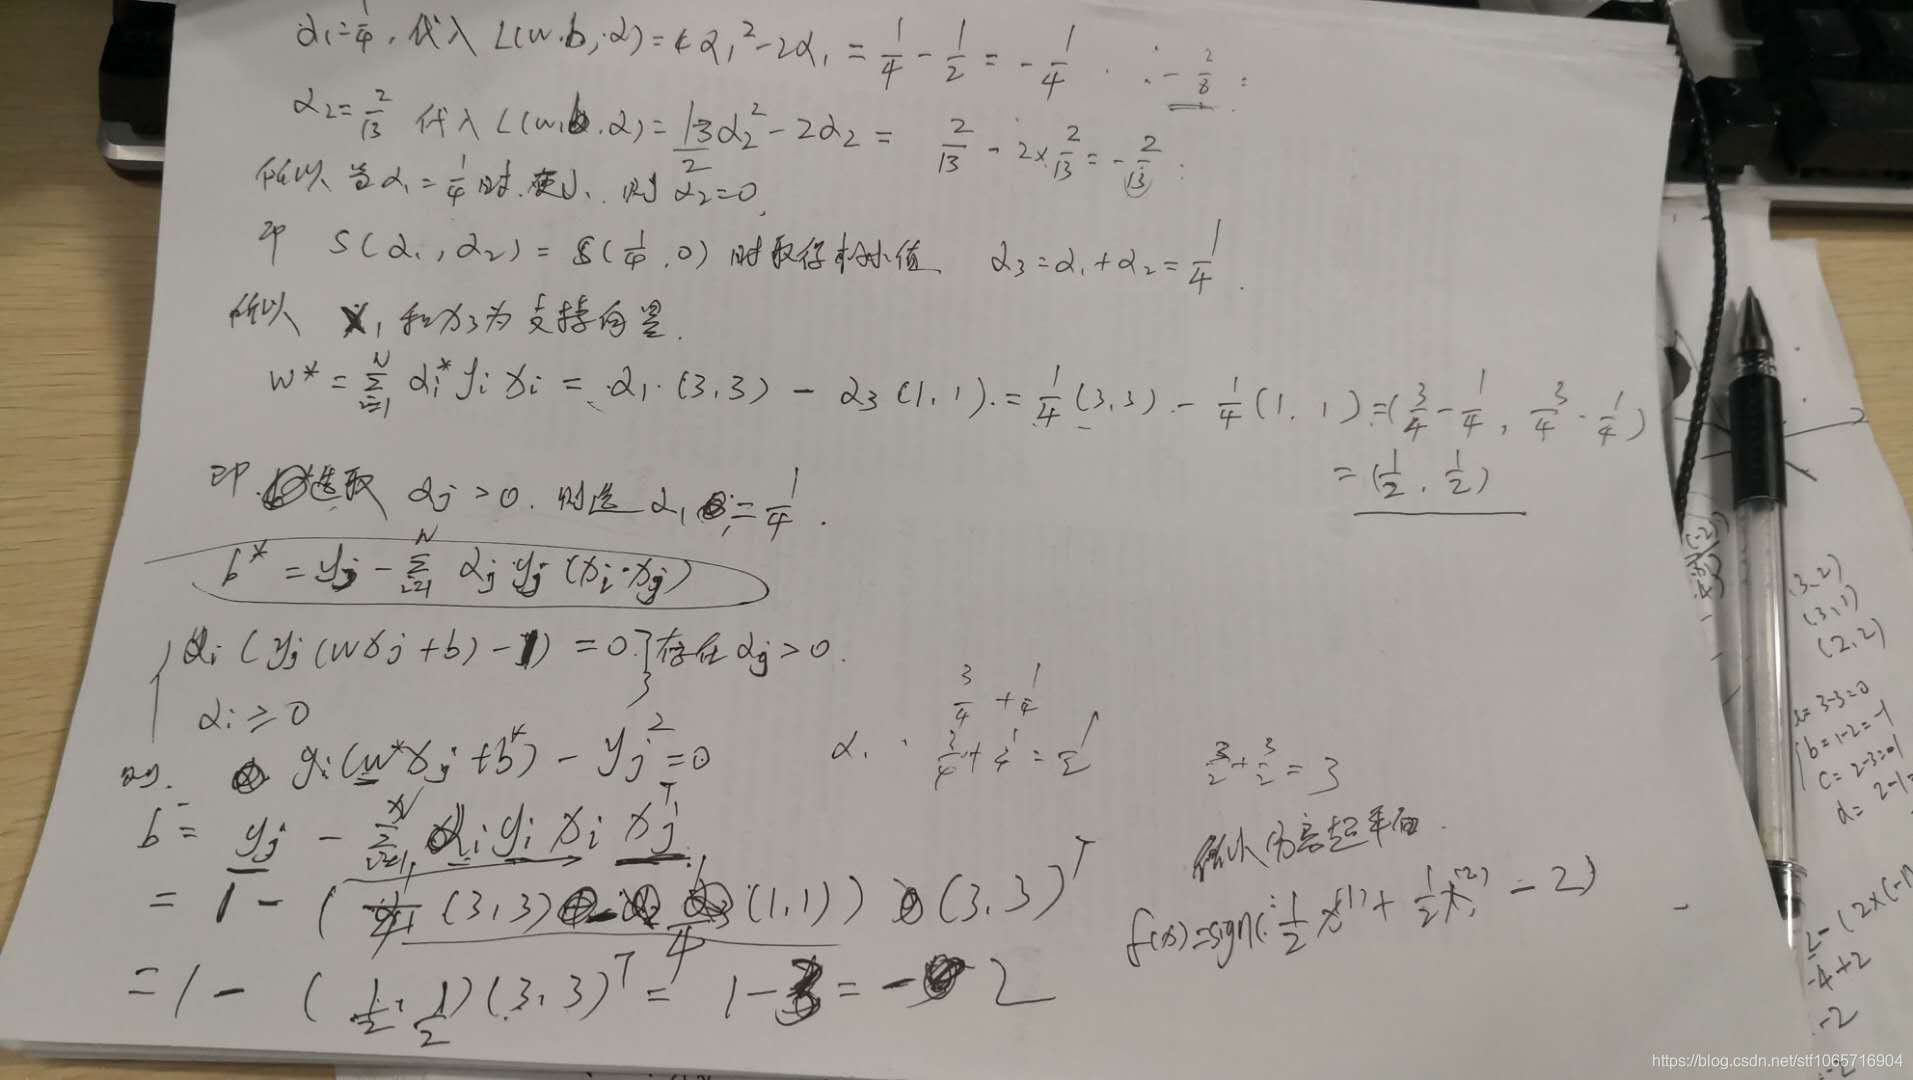 α₁=1/4, 代入 L(w.b,α)=4α₁²-2α₁ = 1/4 - 1/2 = -1/4 . ∴ -2/8 :
α₂=2/13 代入 L(w,b.α)=13/2 α₂²-2α₂ = 2/13 - 2×2/13 = -2/13 .
所以 当α₁=1/4时. 最小. 则 α₂=0,
即 S(α₁,α₂) = S(1/4,0) 时取得极小值 α₃=α₁+α₂=1/4.
所以 x₁和x₃为支持向量.
w* = Σᵢ₌₁ᴺ αᵢ* yᵢ xᵢ = α₁·(3,3) - α₃(1,1) = 1/4(3,3) - 1/4(1,1) = (3/4-1/4, 3/4-1/4)
= (1/2, 1/2)
即 选取 αⱼ>0. 则选 α₁ = 1/4.
b* = yⱼ - Σᵢ₌₁ᴺ αⱼ yⱼ (xᵢ·xⱼ)
αᵢ (yⱼ(wxⱼ+b)-1) = 0 } 存在αⱼ>0.
αᵢ≥0
3/4 + 1/4
则. yᵢ(w*xⱼ+b*) - yⱼ² = 0
α₁ .
3/2 + 3/2 = 3
b = yⱼ - Σᵢ₌₁ᴺ αᵢyᵢxᵢxⱼᵀ
= 1 - (1/4(3,3) - 1/4(1,1)) (3,3)ᵀ
= 1 - (1/2, 1/2)(3,3)ᵀ = 1-3 = -2
所以分离超平面.
f(x)=sign(1/2 x⁽¹⁾ + 1/2 x⁽²⁾ - 2)
(3,2)
(3,1)
(2,2)
a= 3-3=0
b= 1-2=-1
c= 2-3=-1
d= 2-1
-4+2
-2
https://blog.csdn.net/stf1065716904